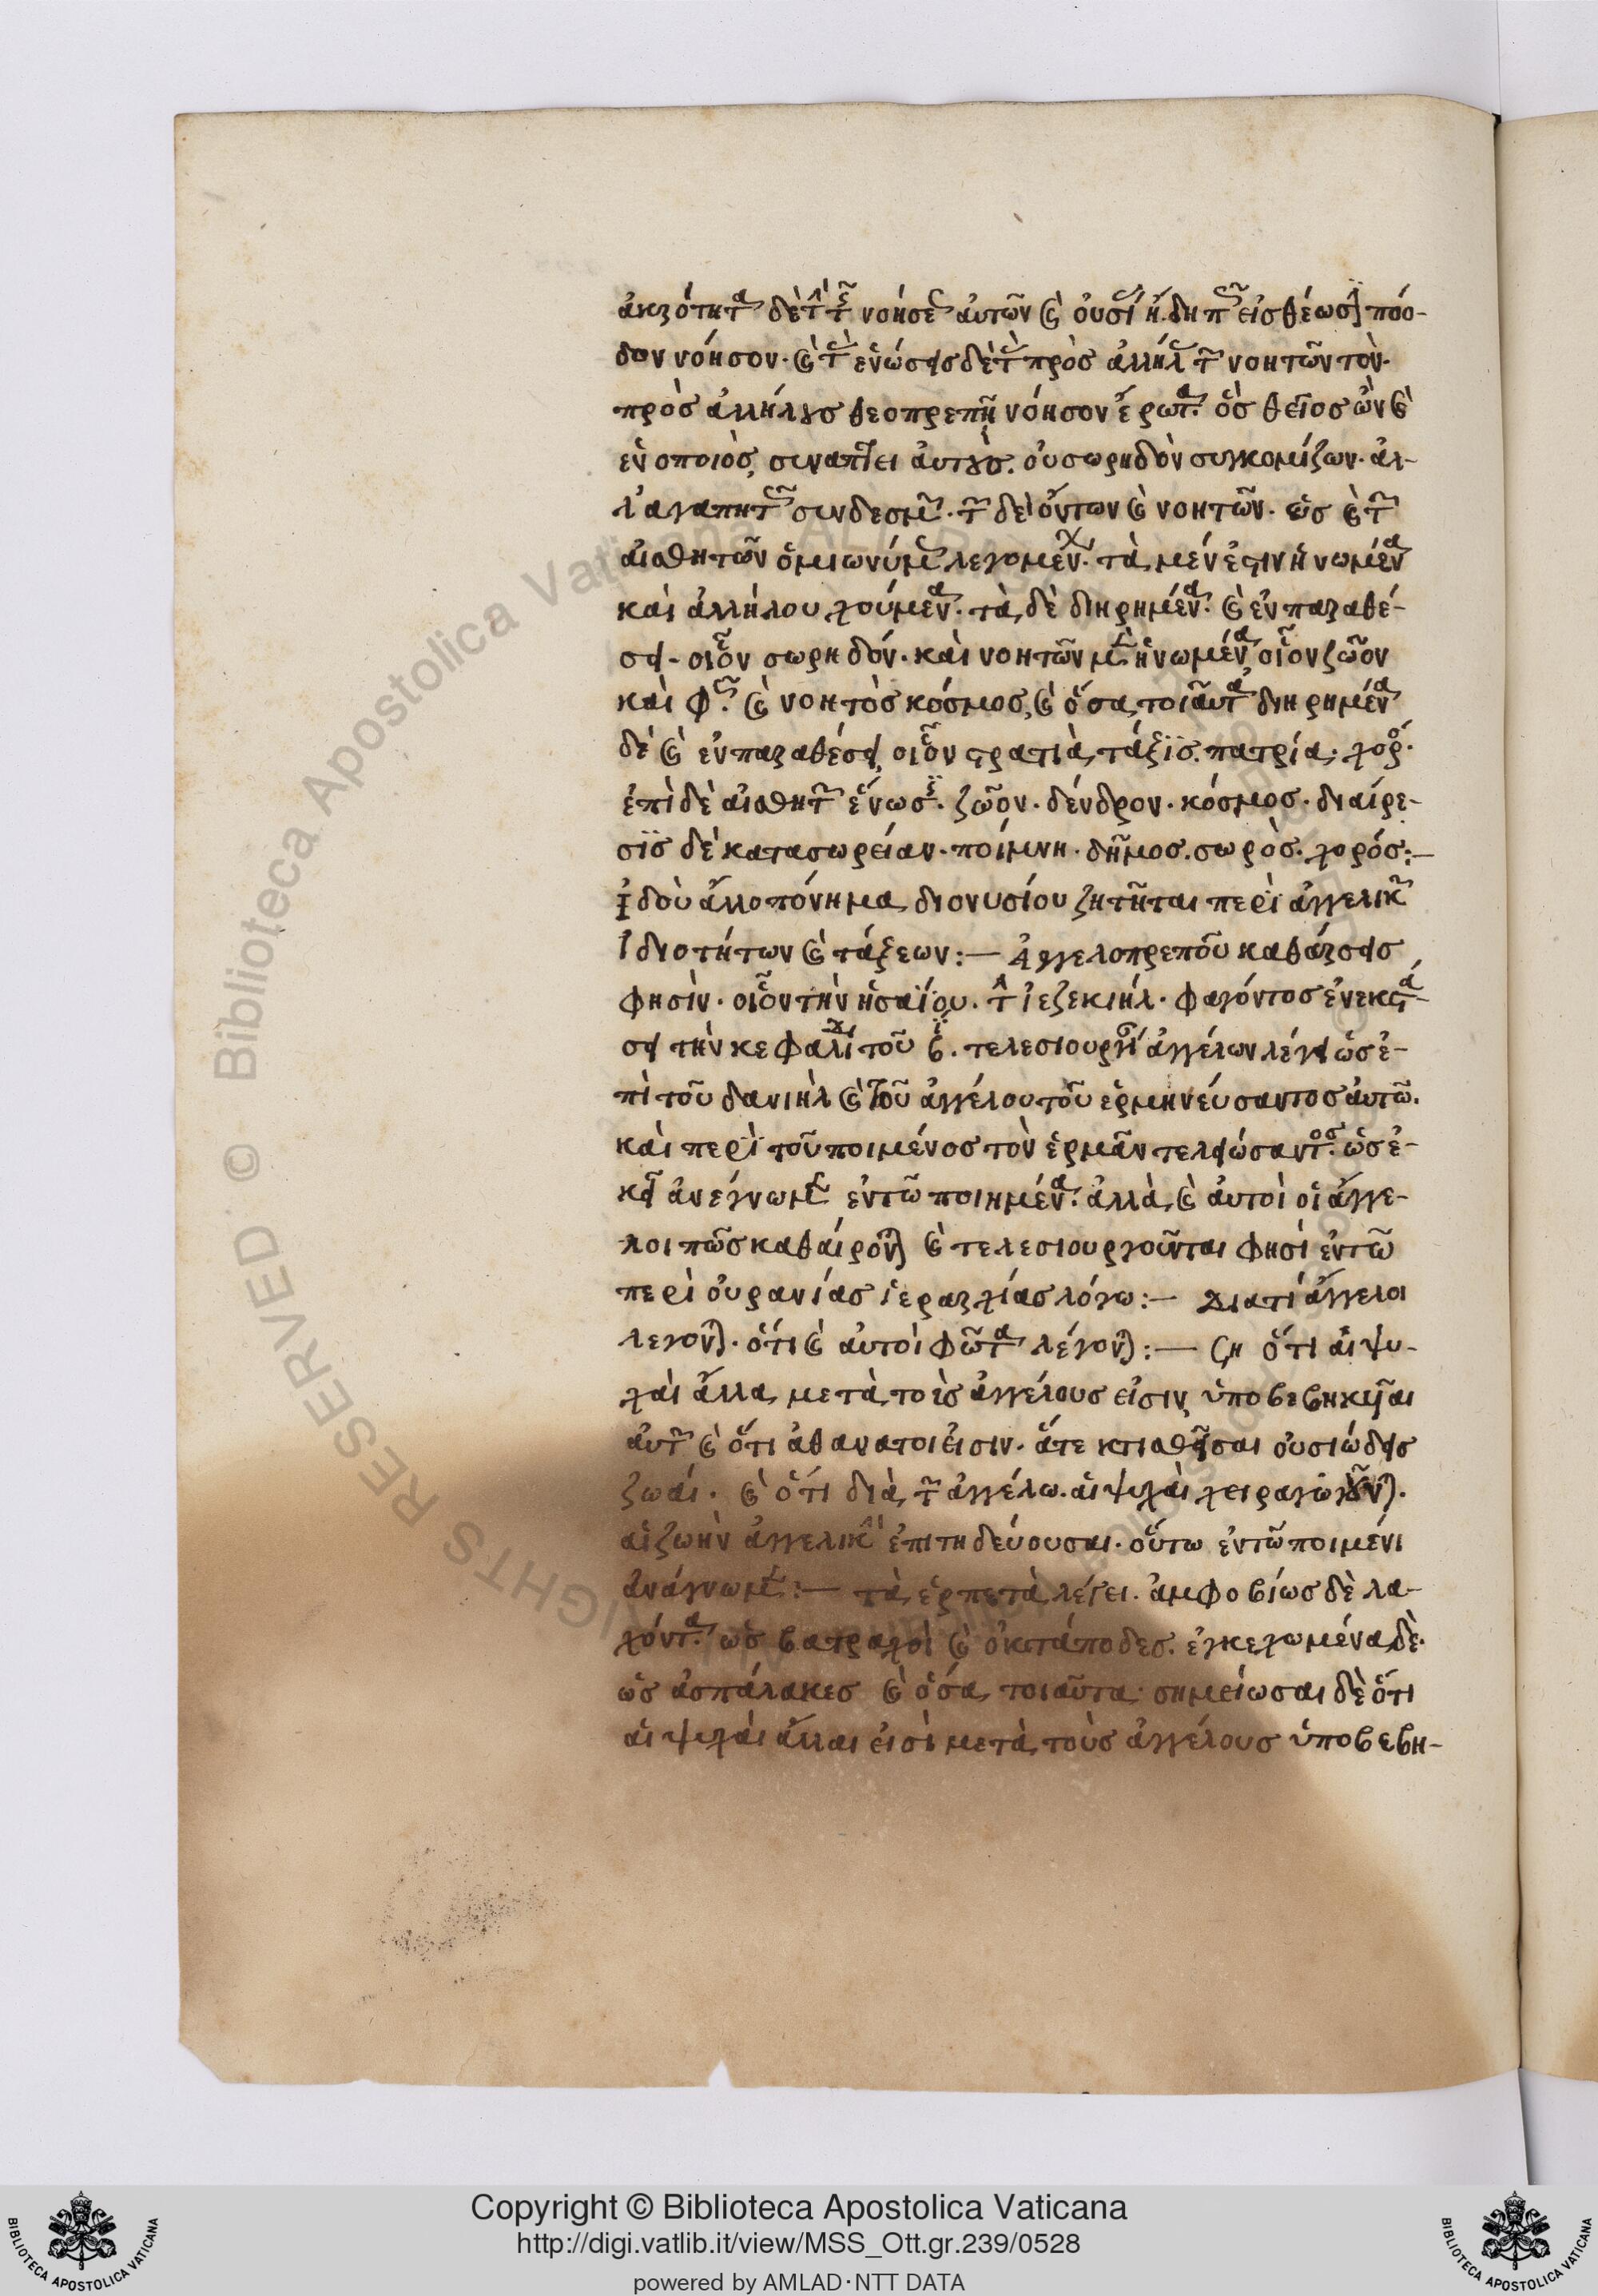 δον νόησον· καὶ
πρὸς ἀλλήλους θεοπρεπῆ νόησον ἔρωτα. ὃς θεῖος ὢν καὶ
ἑνοποιὸς, συνάπτει αὐτοὺς. οὐ σωρηδὸν συγκομίζων· ἀλ-
λ' ἀγαπητ συνδεσμ. τῶν δὲ ὄντων καὶ νοητῶν. ὡς καὶ τῶν
αἰσθητῶν ὁμιωνύμως λεγομεν. τὰ μέν ἐστιν ἡνωμένα
καὶ ἀλληλουχούμενα. τὰ δὲ διηρημένα. καὶ ἐν παραθέ-
σει· οἷον σωρηδόν. καὶ νοητῶν μὲν ἡνωμένα, οἷον ζῶον
καὶ φῶς. καὶ νοητὸς κόσμος, καὶ ὅσα τοιαῦτα διηρημένα
δὲ καὶ ἐν παραθέσει, οἷον στρατιὰ, τάξις. πατρία. χορός.
ἐπὶ δὲ αἰσθητῶν ἕνωσις. ζῶον. δένδρον. κόσμος. διαίρε-
σις δὲ κατασωρείαν. ποίμνη. δῆμος. σωρὸς. χορός:—
Ἰδοὺ ἄλλο πόνημα διονυσίου ζητῆται περὶ ἀγγελικῶν
ἰδιοτήτων καὶ τάξεων:— Ἀγγελοπρεποῦ καθάρσεις
φησὶν. οἷον τὴν ἠσαΐου. τὴν ἰεζεκιήλ. φαγόντος ἐν ἐκστά-
σει τὴν κεφαλίδα τοῦ β. τελεσιουργ ἀγγέλων λέγει ὡς ἐ-
πὶ τοῦ δανιὴλ καὶ τοῦ ἀγγέλου τοῦ ἑρμηνεύσαντος αὐτῶ.
καὶ περὶ τοῦ ποιμένος τὸν ἑρμᾶν τελειώσαντος. ὡς ἐ-
κεῖ ἀνέγνωμεν ἐν τῶ ποιημένα. ἀλλὰ καὶ αὐτοὶ οἱ ἄγγε-
λοι πῶς καθαίρονται καὶ τελεσιουργοῦνται φησὶ ἐν τῶ
περὶ οὐρανίας ἱεραρχίας λόγω:— Διατί ἄγγελοι
λέγονται. ὅτι καὶ αὐτοὶ φῶτα λέγονται:— ση ὅτι αἱ ψυ-
χαὶ ἄλλα μετὰ τοὶς ἀγγέλους εἰσιν, ὑποβεβηκυῖαι
αὐτῶν καὶ ὅτι ἀθανατοι εἰσιν. ἅτε κτισθεῖσαι οὐσιώδεις
ζωαί. καὶ ὅτι διὰ τῶν ἀγγέλω. αἱ ψυχαὶ χειραγωγοῦνται.
αἱ ζωὴν ἀγγελικὴν ἐπιτηδεύουσαι. οὕτω ἐν τῶ ποιμένι
ἀνάγνωμεν:— τὰ ἑρπετὰ λέγει. ἀμφοβίως δὲ λα-
χόντα. ὡς βατραχοὶ καὶ ὀκτάποδες. ἐγκεχωμένα δὲ.
ὡς ἀσπάλακες καὶ ὅσα τοιαῦτα. σημείωσαι δὲ ὅτι
αἱ ψυχαὶ ἄλλαι εἰσὶ μετὰ τοὺς ἀγγέλους ὑποβεβη-
Biblioteca Apostolica Vaticana
Copyright © Biblioteca Apostolica Vaticana
http://digi.vatlib.it/view/MSS_Ott.gr.239/0528
powered by AMLAD·NTT DATA
BIBLIOTECA APOSTOLICA VATICANA
BIBLIOTECA APOSTOLICA VATICANA